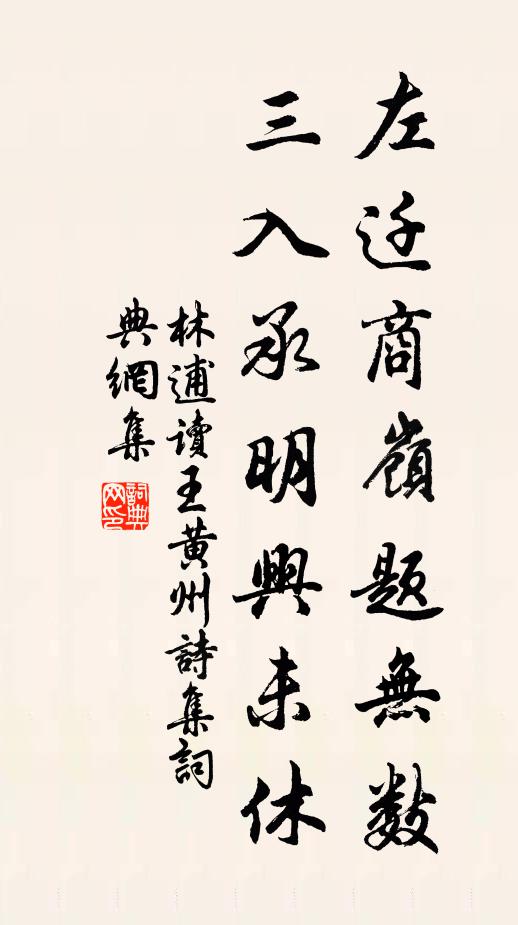 左迁商嶺題無數
三入承明興未休
林逋讀王黃州詩集詞
典網集
詞典网印